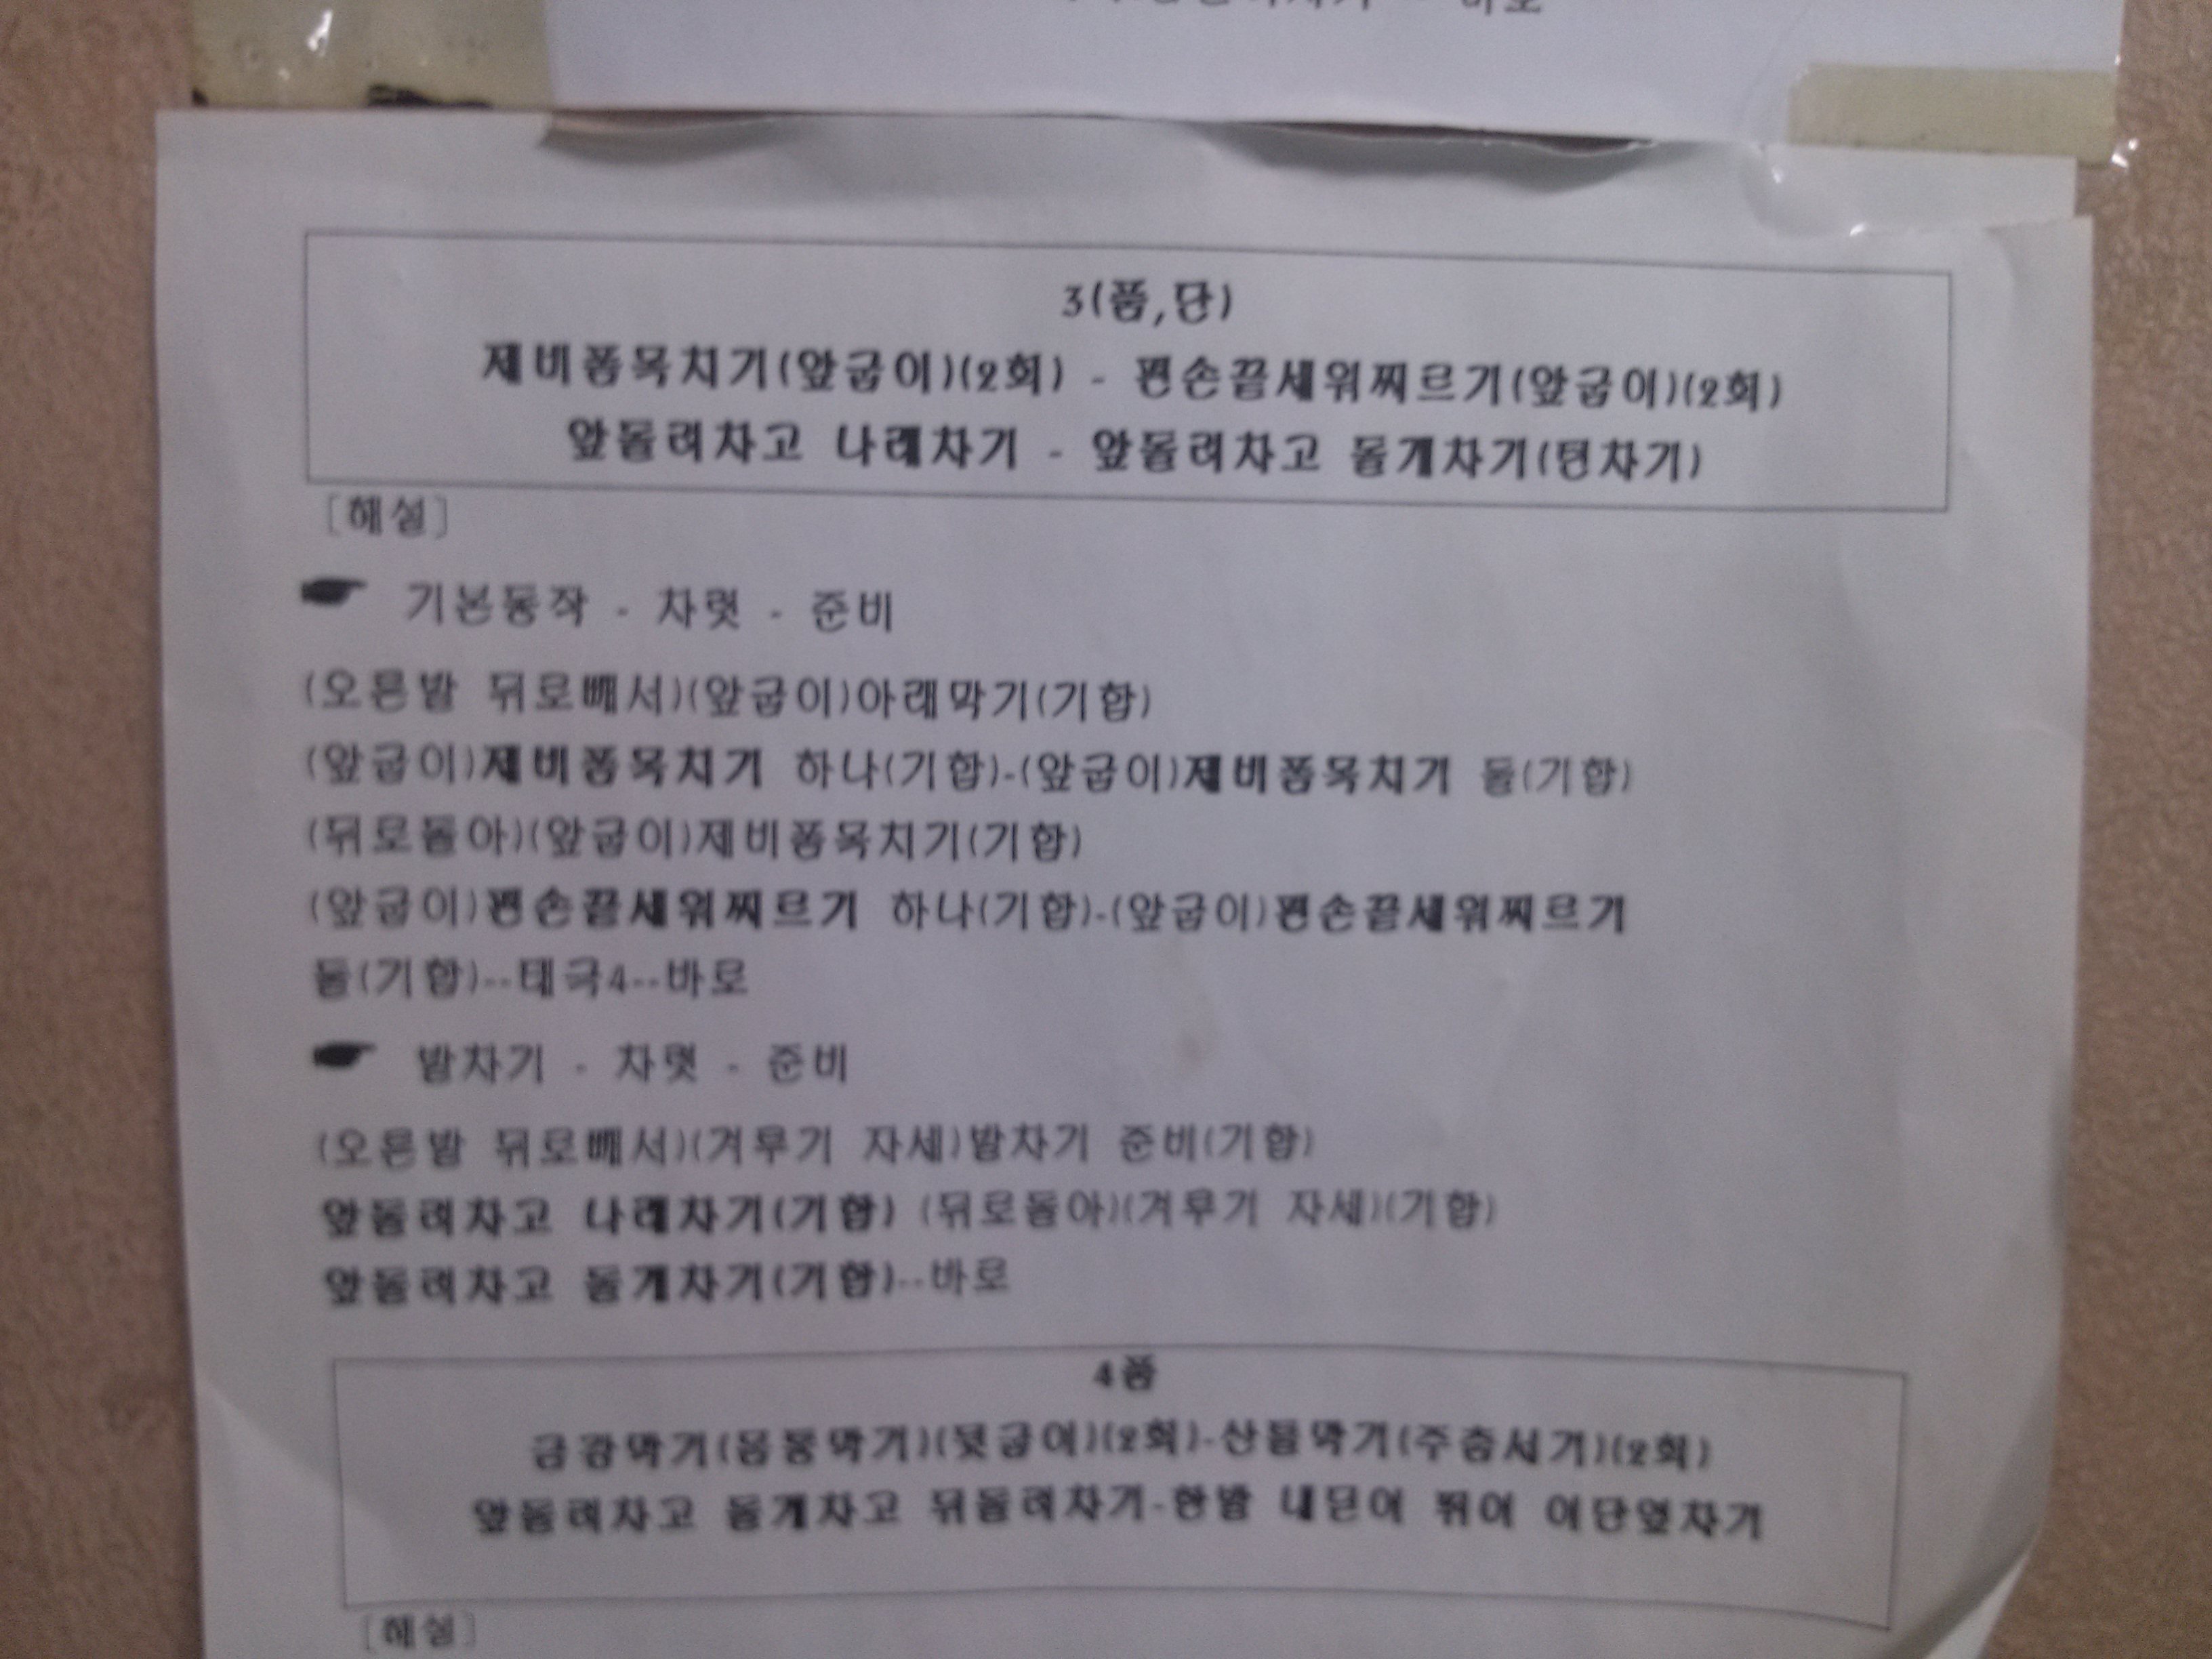 바로
3(품,단)
제비품목치기(앞굽이)(2회) - 편손끝세워찌르기(앞굽이)(2회)
앞돌려차고 나래차기 - 앞돌려차고 돌개차기(턴차기)
[해설]
☛ 기본동작 - 차렷 - 준비
(오른발 뒤로빼서)(앞굽이)아래막기(기합)
(앞굽이)제비품목치기 하나(기합)-(앞굽이)제비품목치기 둘(기합)
(뒤로돌아)(앞굽이)제비품목치기(기합)
(앞굽이)편손끝세워찌르기 하나(기합)-(앞굽이)편손끝세워찌르기
둘(기합)--태극4--바로
☛ 발차기 - 차렷 - 준비
(오른발 뒤로빼서)(겨루기 자세)발차기 준비(기합)
앞돌려차고 나래차기(기합) (뒤로돌아)(겨루기 자세)(기합)
앞돌려차고 돌개차기(기합)--바로
4품
금강막기(몸통막기)(뒷굽이)(2회)-산틀막기(주춤서기)(2회)
앞돌려차고 돌개차고 뒤돌려차기-한발 내딛어 뛰어 이단옆차기
[해설]